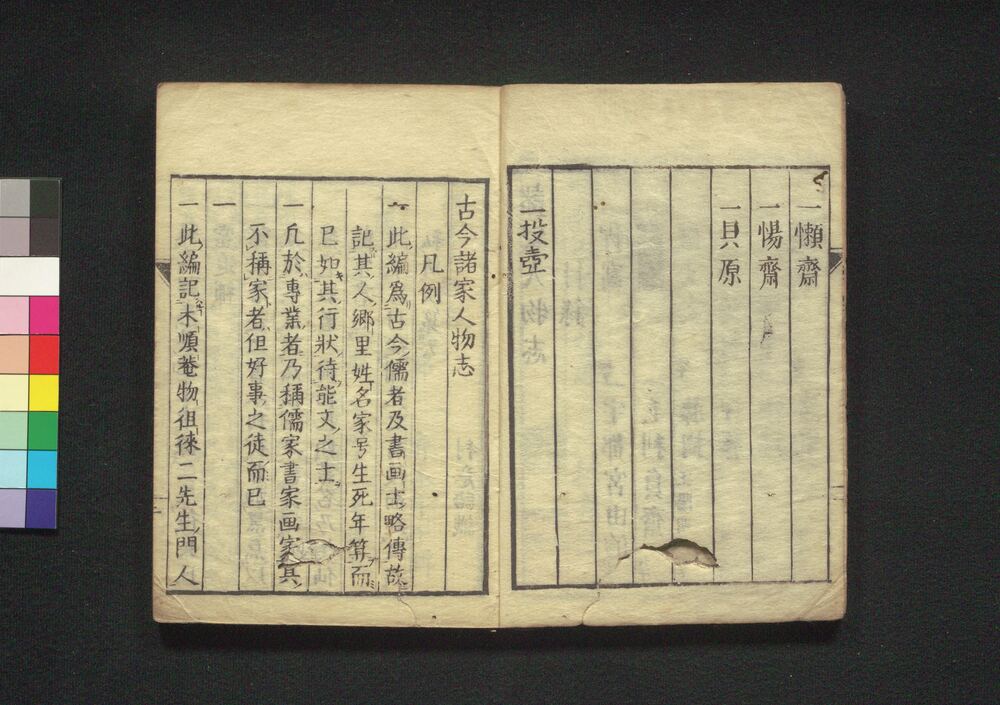 一懶齋
一惕齋
一貝原
一投壺
古今諸家人物志
凡例
一此編爲古今儒者及書画士略傳故
記其人鄉里姓名家号生死年算而
已如其行狀待能文之士
一凡於專業者乃稱儒家書家画家其
不稱家者但好事之徒而已
一
一此編記木順菴物徂徠二先生門人